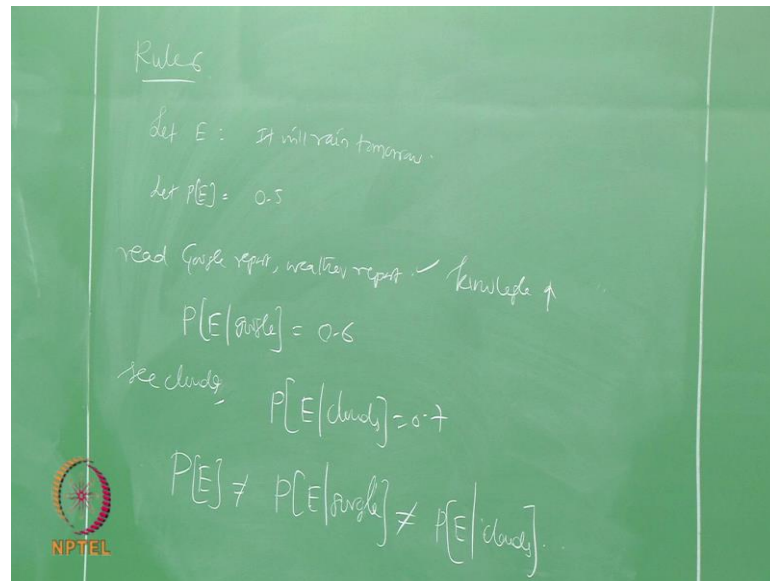 Rules
Let E : It will rain tomorrow.
Let P[E] = 0.5
read Google report, weather report. ✓ knowledge ↑
P[E|google] = 0.6
see clouds, P[E|clouds] = 0.7
P[E] ≠ P[E|google] ≠ P[E|clouds].
NPTEL